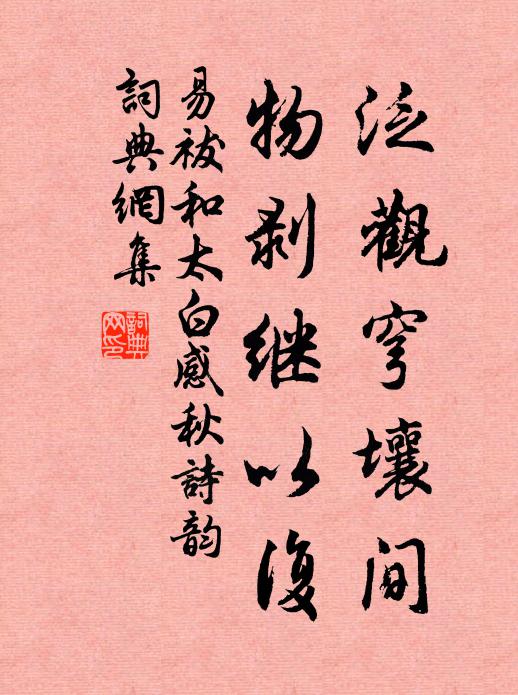 泛觀穹壤間
物剥继以復
易祓和太白感秋詩韵
詞典網集
詞典网印